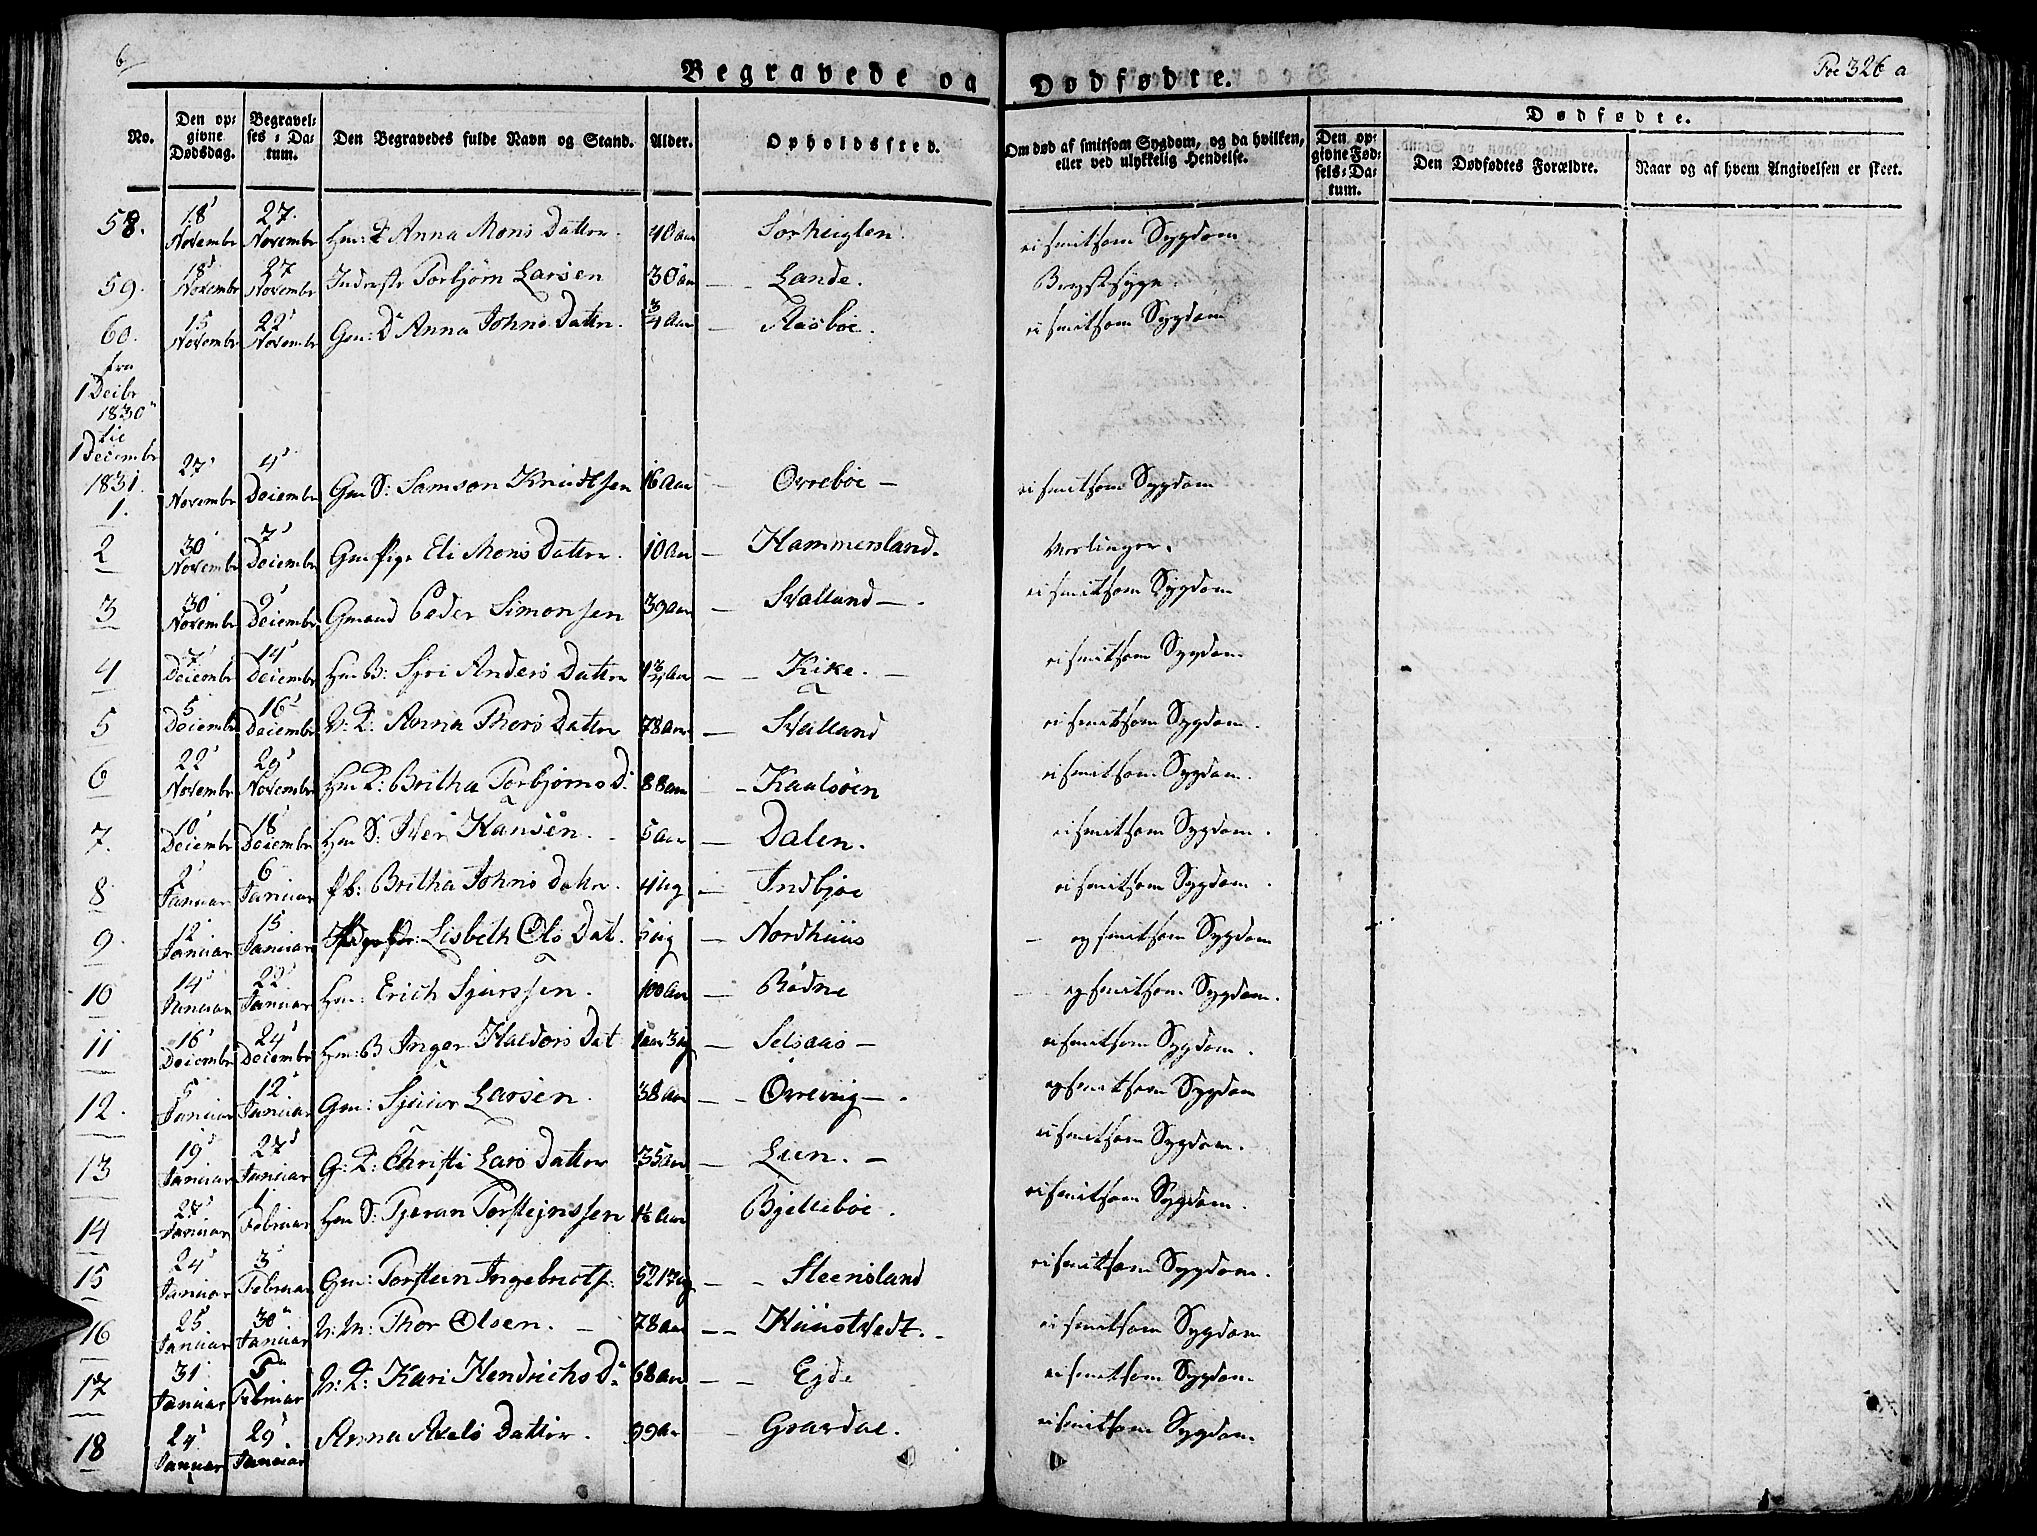 6
Begravede og Dødfødte.
Foe 326 a
No.
Den opgivne Dødsdag.
Begravelses-Datum.
Den Begravedes fulde Navn og Stand.
Alder.
Opholdssted.
Om død af smitsom Sygdom, og da hvilken, eller ved ulykkelig Hendelse.
Dødfødte.
Den opgivne Fødsels-Datum.
Den Dødfødtes Forældre.
Naar og af hvem Angivelsen er skeet.
58. 18 Novembr 27. Novembr Anna Mons Datter. 40 aar Sørheiglen. ei smitsom Sygdom
59. 18 Novembr 27 Novembr Inderste Torbjørn Larsen 30 aar — Lande. Brystsyge.
60. 15 Novembr 22 Novembr Gm: D Anna Johns Datter. 3/4 Aar — Aasboe. ei smitsom Sygdom
fra
1 Decbr
1830
til
1 December
1831.
1. 27 Novembr 4 Decembr Gm S: Samson Knudtsen 16 Aar — Orreboe — ei smitsom Sygdom
2 30 Novembr 7 Decembr Gm Pige Eli Mons Datter. 10 Aar — Hammersland.
3 30 Novembr 9 Decembr Gmand Peder Simonsen 39 Aar — Svalland —. ei smitsom Sygdom
4 7 Decembr 14 Decembr Hm B: Siri Anders Datter Aar — Kike. — ei smitsom Sygdom.
5 5 Decembr 16 Decembr Anna Thors Datter 78 aar — Svalland ei smitsom Sygdom.
6 22 Novembr 29 Novembr Britha Torbjørns D. 88 aar — Kaalsøen ei smitsom Sygdom.
7. 10 Decembr 18 Decembr Hm S: Iver Hansen. 5 aar — Dalen. ei smitsom Sygdom.
8 2 Januar 6 Januar Britha Johns Datr. 4 ug — Indbjoe ei smitsom Sygdom.
9. 12 Januar 15 Januar Lisbeth Ols Dat. 5 ug — Nordhuus — og smitsom Sygdom
10 14 Januar 22 Januar Hm: Erich Sjurssen. 100 Aar — Bødne og smitsom Sygdom.
11 16 Decembr 24 Decembr Hm: B Inger Haldors Dat 1 aar 3 ug — Selsaas — ei smitsom Sygdom.
12. 5 Januar 12 Januar Gm: Sjuur Larsen. 38 Aar — Orrevig —. og smitsom Sygdom
13 19 Januar 27 Januar Christi Lars Datter 35 Aar — Lien. — ei smitsom Sygdom.
14 Januar 1 Februar Hm S: Tjeran Torstejnssen 1½ Aar Bjelleboe. ei smitsom Sygdom.
15 24 Januar 3 Februar Gm: Torstein Ingebrictss. 52 17 ug — Steensland ei smitsom Sygdom.
16 25 Januar 30 Januar Thor Olsen. — 78 aar — Huustvedt. — ei smitsom Sygdom
17 31 Januar 5 Februar Kari Hendrichs D. 68 Aar — Ejde ei smitsom Sygdom.
18 24 Januar 29 Januar Anna Axels Datter. 99 Aar — Graudal. ei smitsom Sygdom.